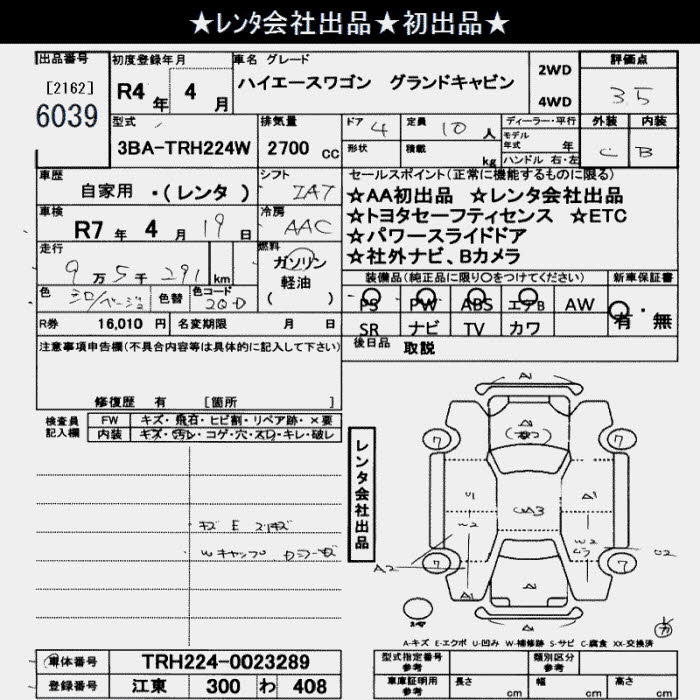 ★レンタ会社出品★初出品★
出品番号 初度登録年月 車名 グレード 評価点
[2162] R4年 4月 ハイエースワゴン グランドキャビン 2WD 4WD 3.5
6039
型式 排気量 ドア 4 定員 10人 ディーラー・平行 外装 内装
3BA-TRH224W 2700 cc 形状 積載 kg モデル年式 年 C B
ハンドル 右・左
車歴 シフト セールスポイント(正常に機能するものに限る)
自家用 ・(レンタ ) IAT ★AA初出品 ★レンタ会社出品
車検 冷房 ★トヨタセーフティセンス ★ETC
R7年 4月 19日 AAC ★パワースライドドア
走行 燃料 ★社外ナビ、Bカメラ
9万5千291km ガソリン
軽油
( )
装備品(純正品に限り○をつけてください) 新車保証書
色 シロ/ベージュ 色替 色コード 2QD PS PW ABS エアB AW 有・無
R券 16,010 円 名変期限 月 日 SR ナビ TV カワ
注意事項申告欄(不具合内容等は具体的に記入して下さい) 後日品 取説
修復歴 有 [箇所 ]
検査員記入欄 FW キズ・飛石・ヒビ割・リペア跡・×要
内装 キズ・汚レ・コゲ・穴・スレ・キレ・破レ
レンタ会社出品
A1
A1
7 7
U1 UA3 A1
W2 W2
U2
A2 7 7
A1
A1
A-キズ E-エクボ U-凹み W-補修跡 S-サビ C-腐食 XX-交換済
車体番号 TRH224-0023289 型式指定番号参考 類別区分参考
登録番号 江東 300 わ 408 車庫証明用参考 長さ cm 幅 cm 高さ cm